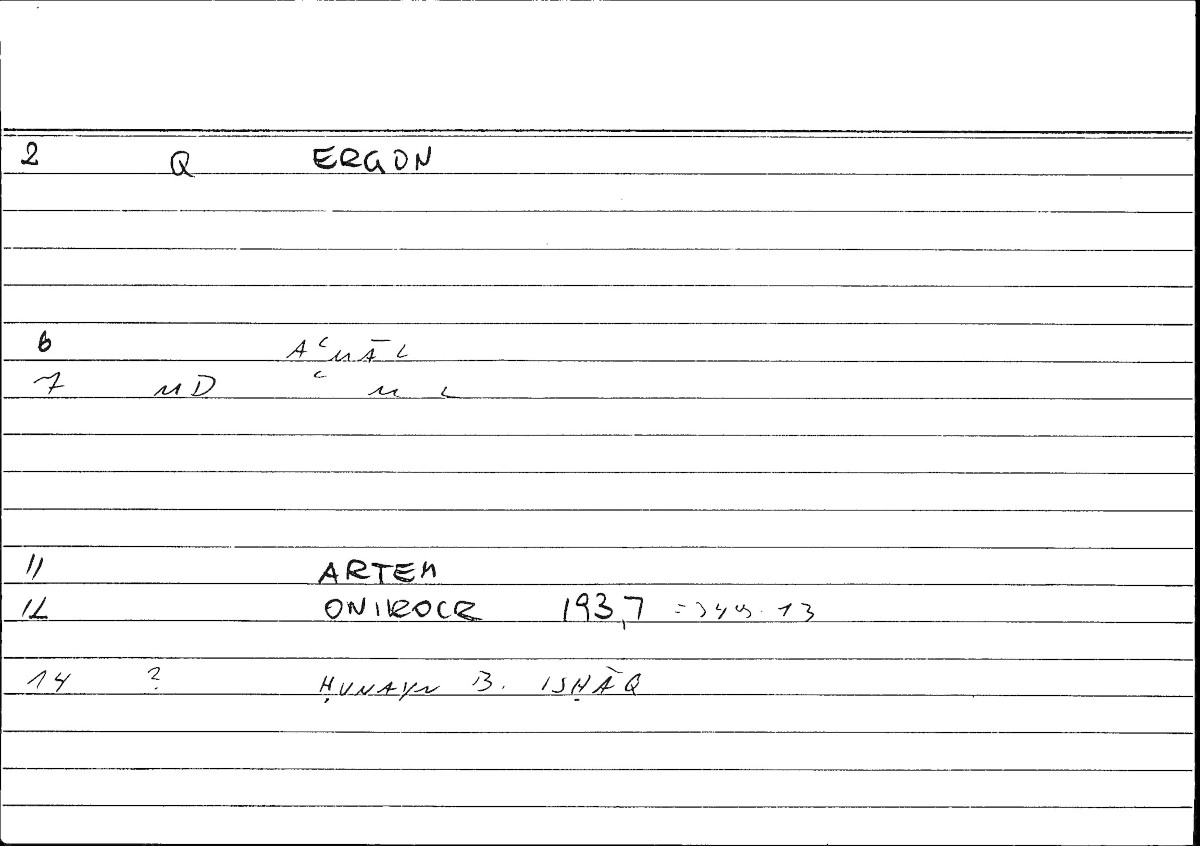 2 Q ERGON
6 AʿMĀL
7 MD ʿ M L
11 ARTEM
12 ONIROCR 193,7 = 344. 13
14 ? ḤUNAYN B. ISḤĀQ